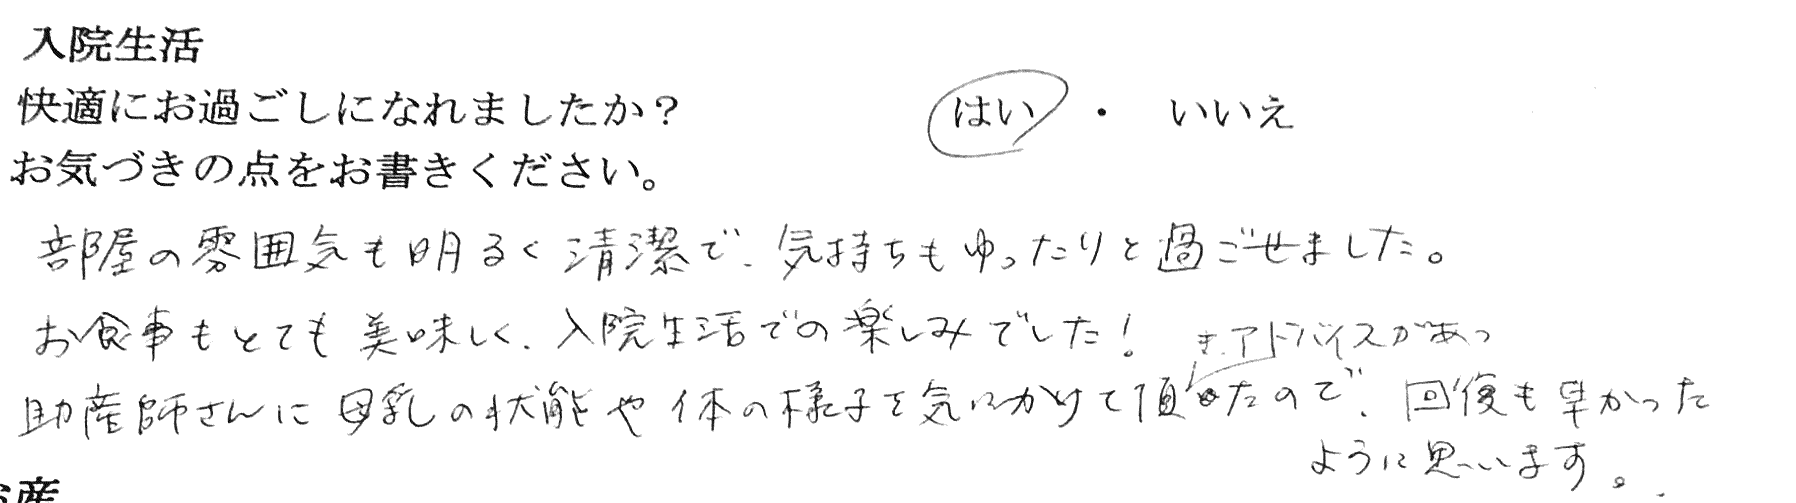 入院生活
快適にお過ごしになれましたか？ はい ・ いいえ
お気づきの点をお書きください。
部屋の雰囲気も明るく清潔で、気持ちもゆったりと過ごせました。
お食事もとても美味しく、入院生活での楽しみでした！
き、アドバイスがあっ
助産師さんに母乳の状態や体の様子を気にかけて頂たので、回復も早かった
ように思います。
お産